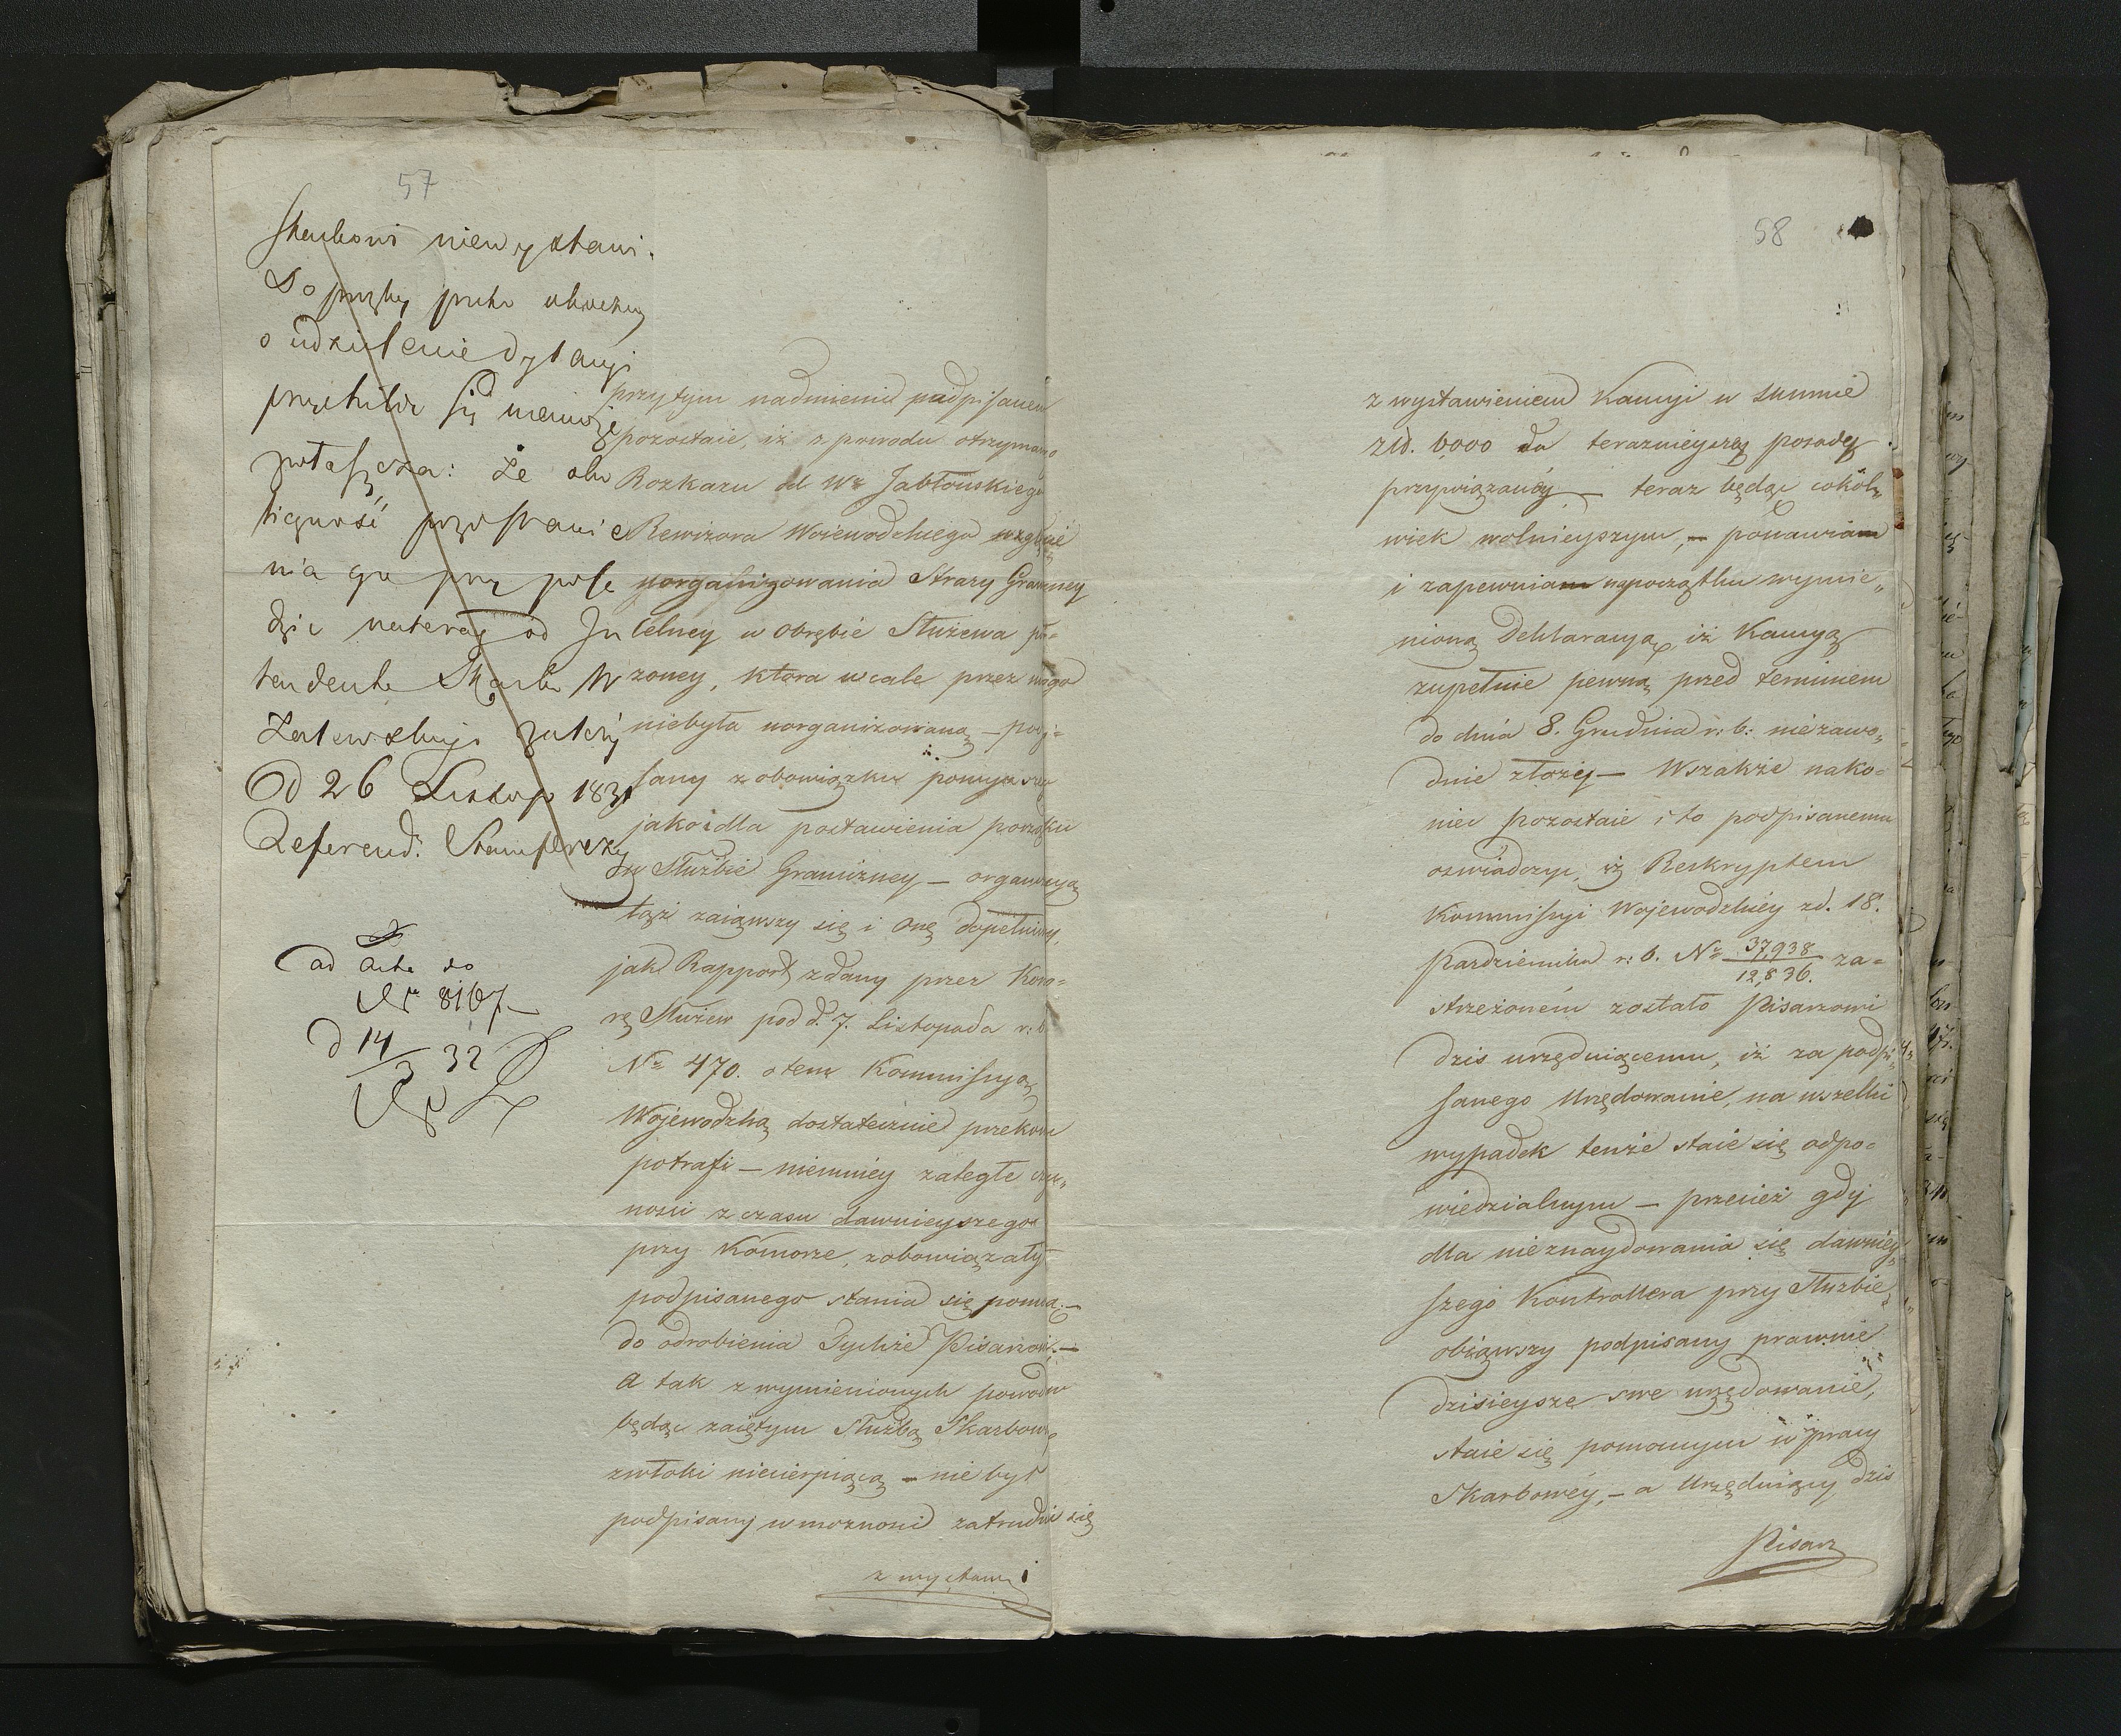 57
Skarbowi niewystawi.
Do prośby
o udzielenie dylacyi
przychilić się niemoże
że obo
wiązuość pozostawie
nia go przy posa
dzie należy od In
tendenta Skarbu W
Zalewskiego
D 26 Listop 1831
Referend.
ad acta do
Nr 8167
D 14/3 32
przytym nadmienić podpisanem
pozostaie, iż z powodu otrzymano
Rozkazu od Wo Jabłonskiego
Rewizora Woiewodzkiego wzglęe
uorganizowania Strazy Graniczney
Celney w Obrębie Służewa po-
zoney, która wcale przez nogo
niebyła uorganizowaną — podj-
sany z obowiązku
jako i dla postawienia porządku
w Służbie Granizney — organizacyą
tąż zaiąwszy się i Onę dopełniwszy,
jak Rapport zdany przez Komo-
rę Służew pod d. 7. Listopada r: b
No 470. o tem Kommissyą
Wojewodzką dostatecznie przekonać
potrafi — niemniéy zaległe czyn„
nosci z czasu dawnieyszego
przy Komorze, zobowiązały
podpisanego stania się pomoc.—
do odrobienia Tychże Pisarzowi.—
A tak z wymienionych powodow
będąc zaiętym Służbą Skarbową
zwłoki niecierpiącą — nie był
podpisany w moznosci zatrudnić się
z wystawi
58
z wystawieniem Kaucyi w Summie
zld. 6000 do teraznieyszey posady
przywiązanéy — teraz będąc cokol„
wiek wolnieyszym, — ponawiam
i zapewniam napoczątku wymie„
nioną Deklaracyą, iż Kaucyą
zupełnie pewną przed terminem
do dnia 8. Grudnia r: b: niezawo„
dnie złożę — Wszakże nako-
niec pozostaie i to podpisanemu
oswiadczyć, iż Reskryptem
Kommissyi Wojewodzkiéy zd. 18.
Pazdziernika r: b. No 37,938/12,836. za-
strzeżoném zostało Pisarzowi
dzis urzęduiącemu, iż za podpi„
sanego Urzędowanie, na wszelki
wypadek tenże staie się odpo-
wiedzialnym — przecież gdy
dla nieznaydowania się dawniéy„
szego Kontrollera przy Służbie,
obiąwszy podpisany prawnie
dzisieysze swe urzędowanie,
staie się pomocnym w pracy
Skarbowéy, — a Urzęduiący dzis
Pisarz